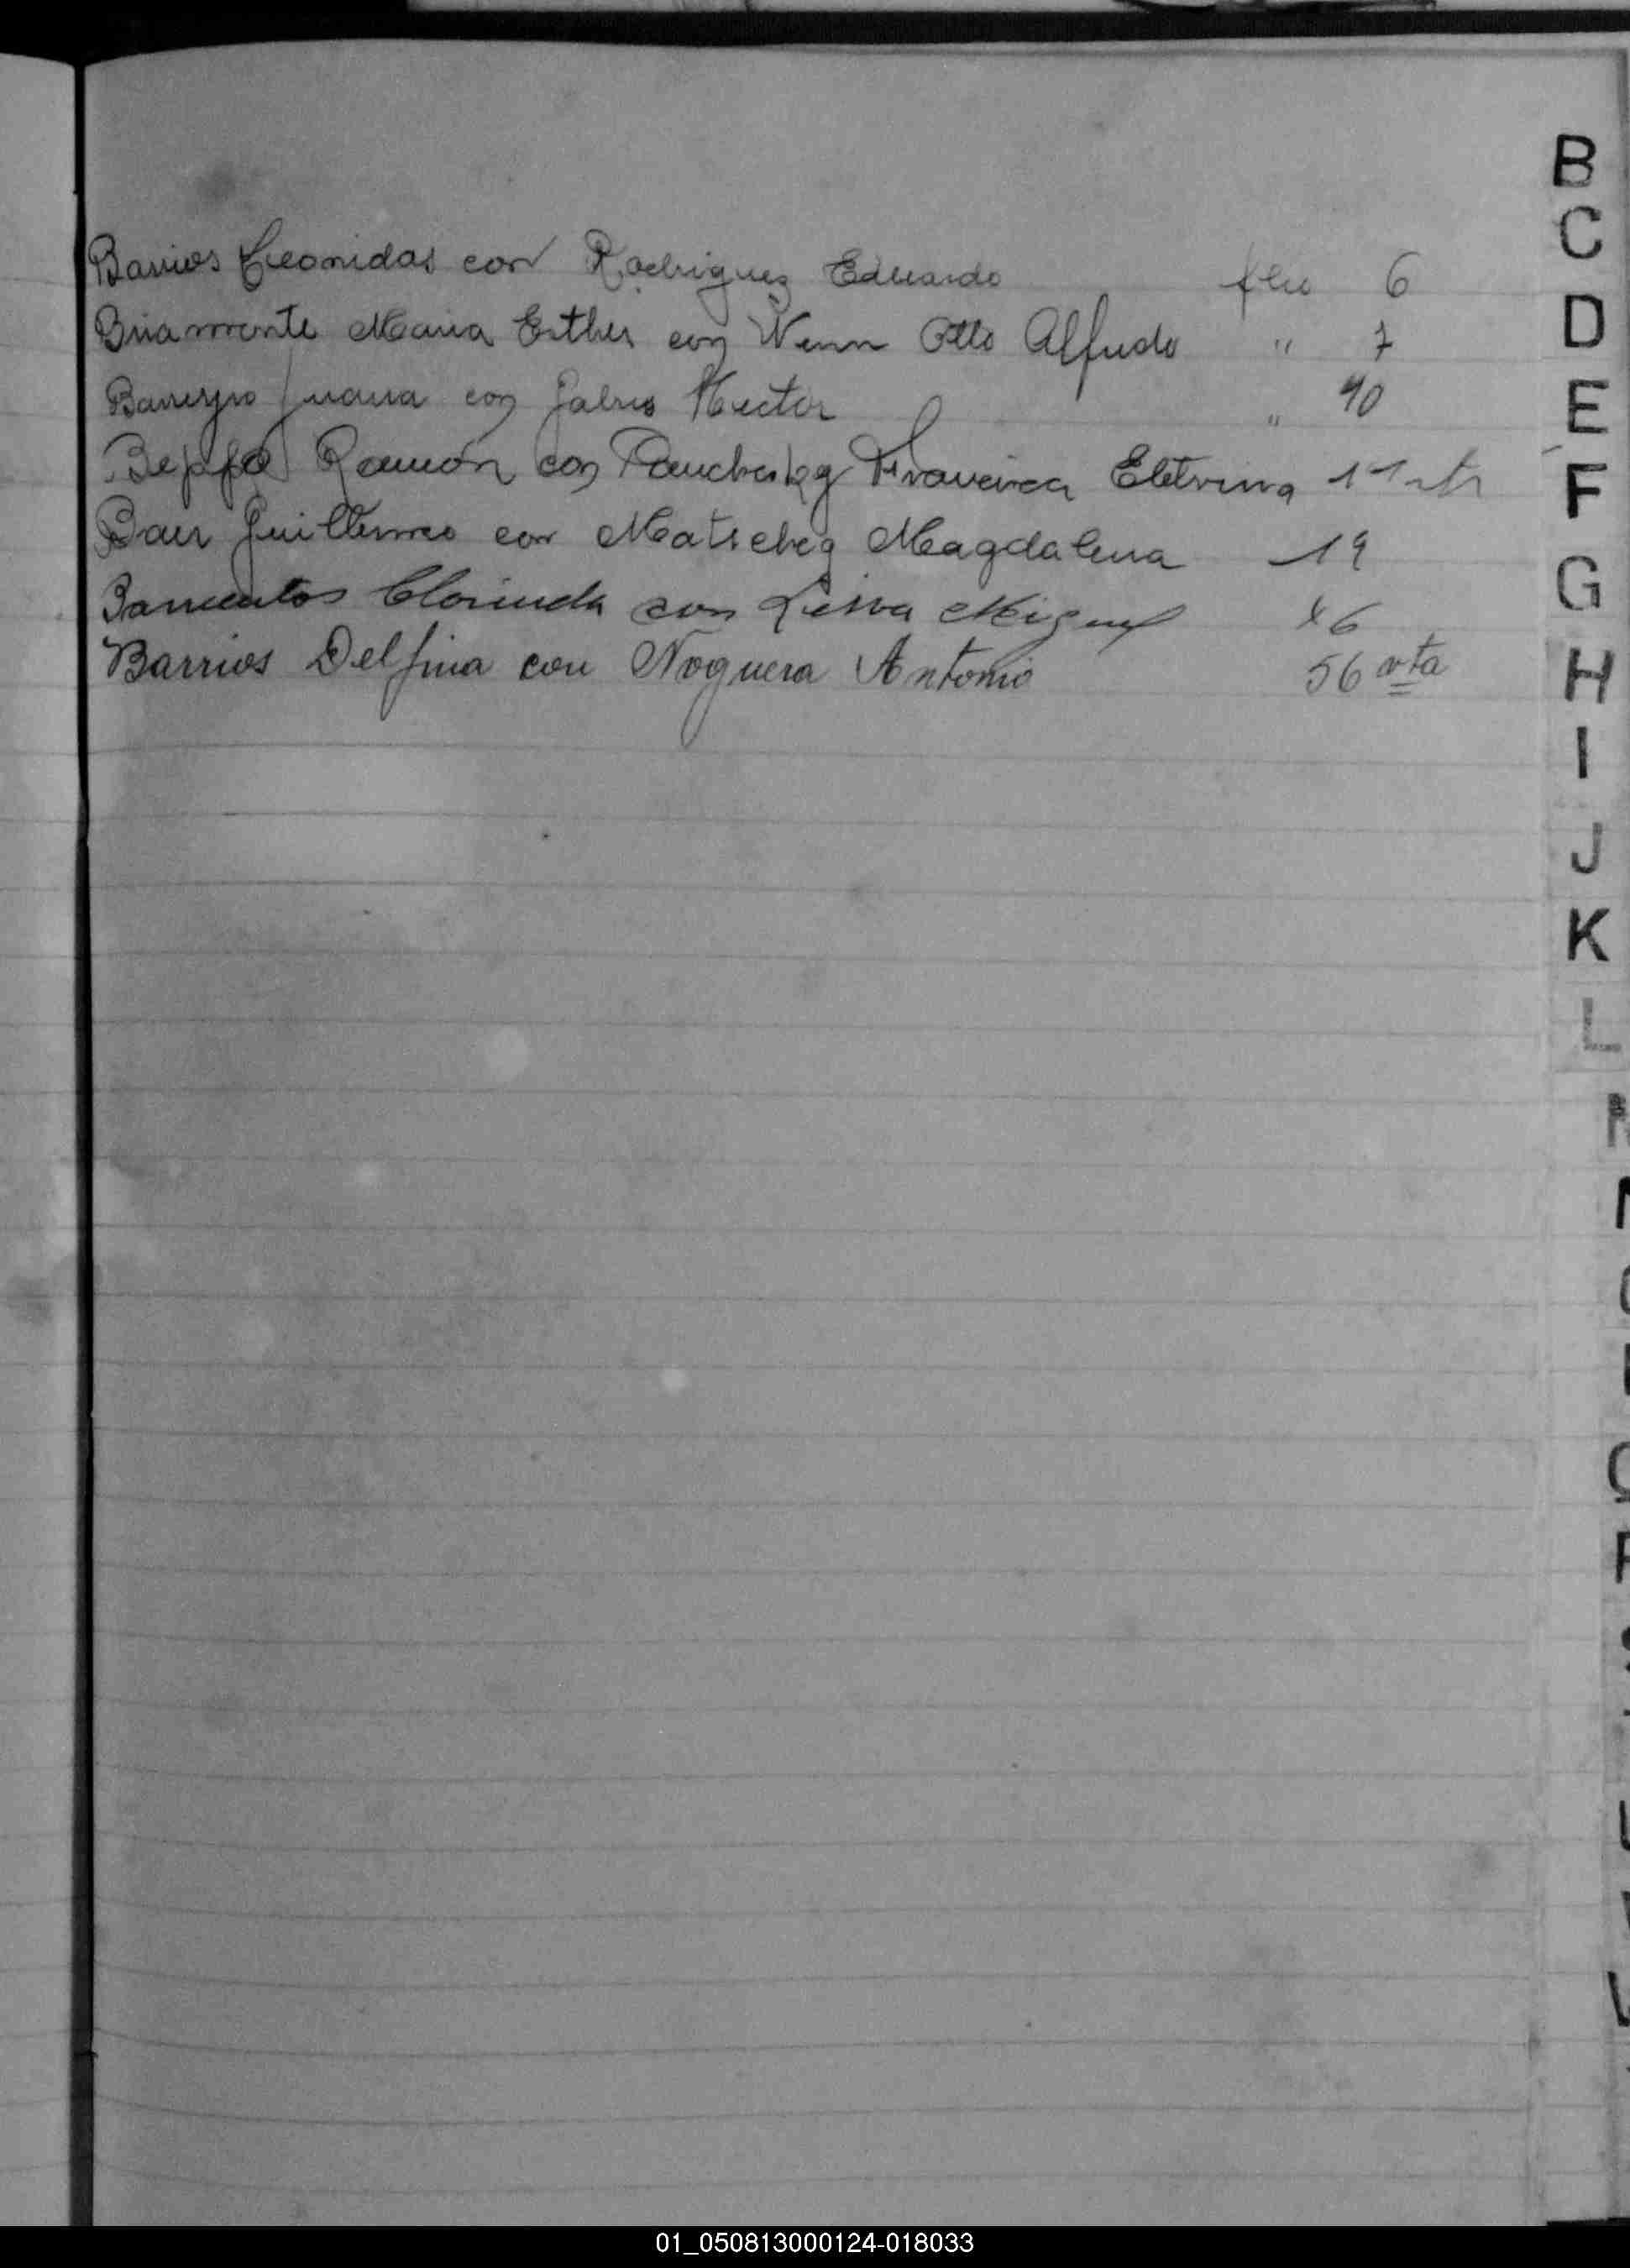 Barrios Leonidas con Rodriguez Eduardo flio 6
Briamonte Maria Esther con Wenn Otto Alfredo " 7
Barreyro Juana con Hector " 10
Ramón con Francisca 11 vta
Baur Guillermo con Magdalena 19
Barrientos Clorinda con Leiva Miguel 46
Barrios Delfina con Noguera Antonio 56 vta
B
C
D
E
F
G
H
I
J
K
L
01_050813000124-018033